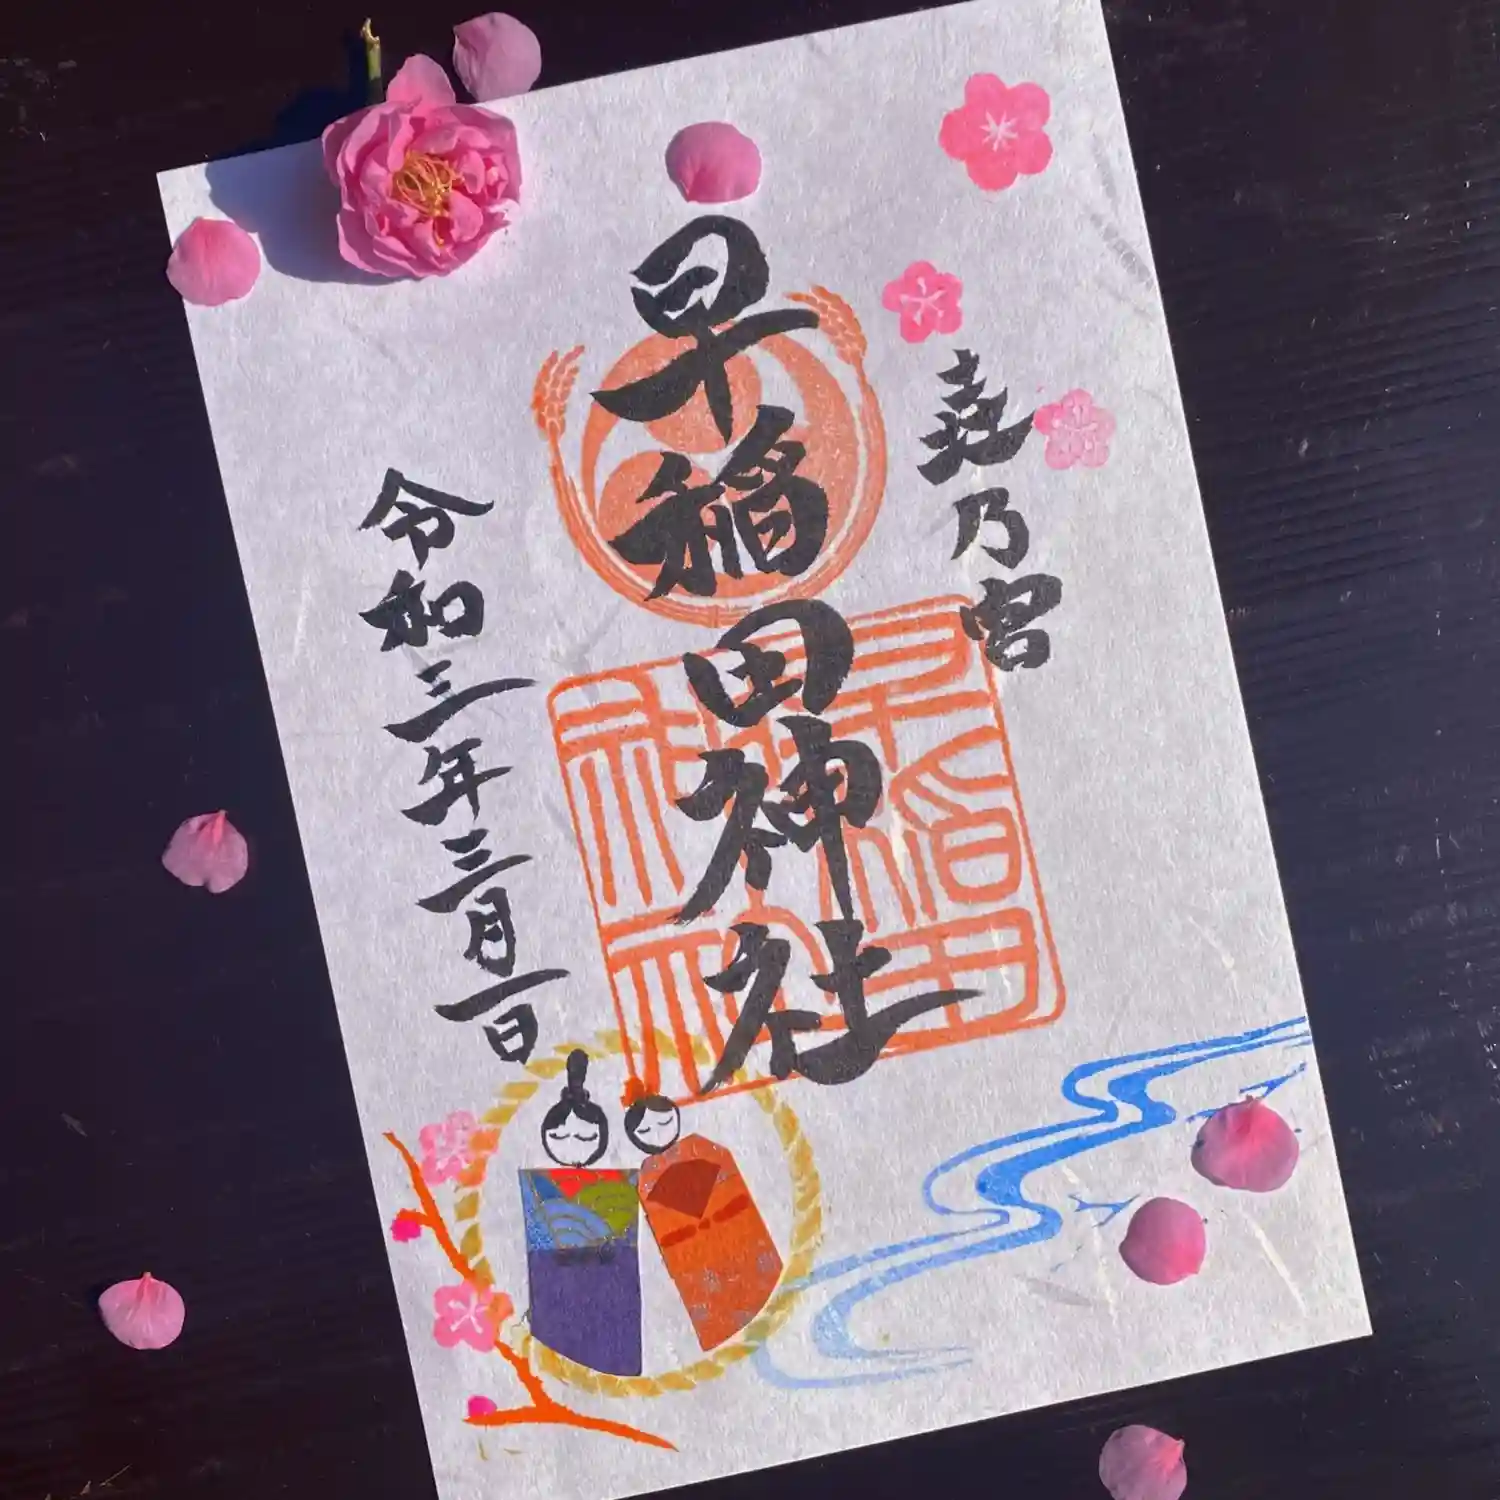 喜乃宮
早稲田神社
早稲田神社
令和三年三月一日